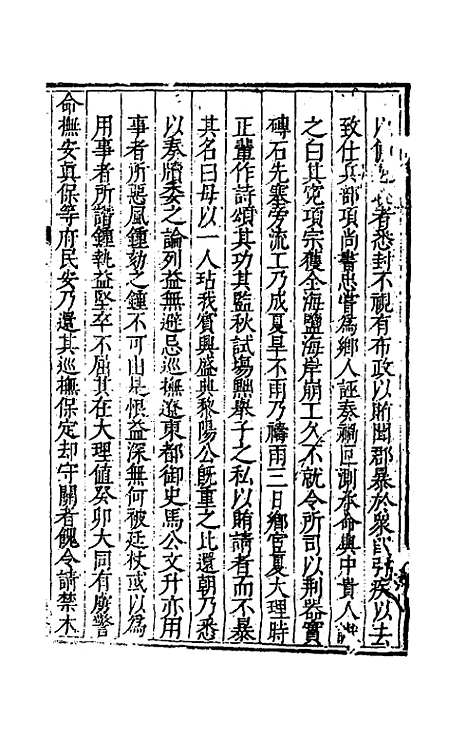 以■■■者悉封不視有布政以賄聞郡暴於衆■引疾以去
致仕兵部項尚書忠嘗爲鄉人誣奏禍叵測承命與中貴人■
之白其寃項宗獲全海鹽海岸崩工久不就令所司以荆器實
磚石先塞旁流工乃成夏旱不雨乃禱雨三日鄉官夏大理時
正輩作詩頌其功其監秋試場黜舉子之私以賄請者而不暴
其名曰毋以一人玷我賓興盛典黎陽公旣重之比還朝乃悉
以奏牘委之論列益無避忌巡撫遼東都御史馬公文升亦用
事者所惡風鍾劾之鍾不可由是恨益深無何被廷杖或以爲
用事者所譖鍾執益堅卒不屈其在大理值癸卯大同有虜警
命撫安真保等府民安乃還其巡撫保定却守關者餽令請禁木